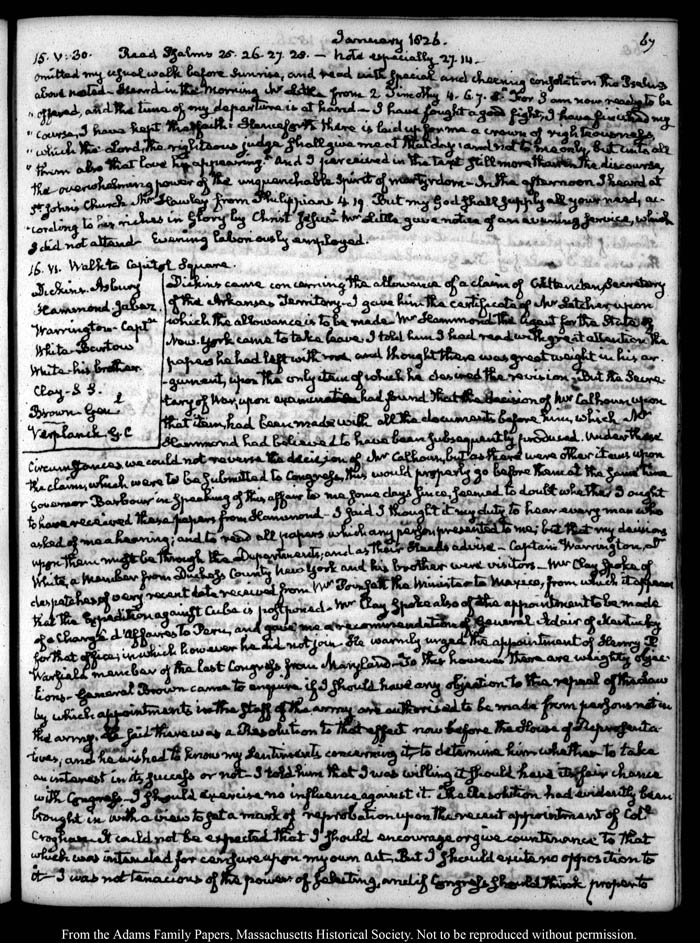 January 1826.
67
15. V: 30. Read Psalms 25. 26. 27. 28. — Note especially 27. 14.—
omitted my usual walk before sunrise, and read with special and cheering consolation the Psalms
above noted — Heard in the Morning Mr Little from 2. Timothy 4. 6. 7. 8. "For I am now ready to be
"offered, and the time of my departure is at hand — I have fought a good fight, I have finished my
"course, I have kept the faith: Henceforth there is laid up for me a crown of righteousness,
"which the Lord, the righteous judge shall give me at that day: and not to me only, but unto all
"them also that love his appearing." And I perceived in the text still more than in the discourse,
the overwhelming power of the unquenchable Spirit of martyrdom — In the afternoon I heard at
St. John's Church Mr Hawley from Philippians 4. 19. "But my God shall supply all your need, ac-
"cording to his riches in Glory by Christ Jesus." Mr Little gave notice of an evening service, which
I did not attend. Evening laboriously employed.
16. VI. Walk to Capitol Square.
Dickins. Asbury
Hammond Jabez.
Warrington — Captn
White. Bartow
White. his brother.
Clay — S. S.
Brown Genl
Verplanck. G. C
Dickins came concerning the allowance of a claim of Crittenden, Secretary
of the Arkansas Territory — I gave him the certificate of Mr Letcher upon
which the allowance is to be made. Mr Hammond the Agent for the State of
New-York came to take leave. I told him I had read with great attention the
papers he had left with me, and thought there was great weight in his ar-
gument, upon the only item of which he desired the revision — But the Secre-
tary of War, upon examination had found that the decision of Mr Calhoun upon
that item, had been made with all the documents before him, which Mr
Hammond had believed to have been subsequently produced. Under these
circumstances we could not reverse the decision of Mr Calhoun, but as there were other items upon
the claim, which were to be submitted to Congress, this would properly go before them at the same time
Governor Barbour in speaking of this affair to me some days since, seemed to doubt whether I ought
to have received these papers from Hammond — I said I thought it my duty to hear every man who
asked of me a hearing; and to read all papers which any person presented to me; but that my decisions
upon them might be through the Departments, and as their Heads advise — Captain Warrington, Mr
White, a Member from Duchess County New York and his brother were visitors — Mr Clay spoke of
despatches of very recent date received from Mr Poinsett the Minister to Mexico, from which it appears
that the expedition against Cuba is postponed — Mr Clay spoke also of the appointment to be made
of a Chargé d'Affaires to Peru, and gave me a recommendation of General Adair of Kentucky
for that office; in which however he did not join. He warmly urged the appointment of Henry R
Warfield member of the last Congress from Maryland — To this however there are weighty objec-
tions — General Brown came to enquire if I should have any objection to the repeal of the Law
by which appointments in the staff of the army are authorised to be made from persons not in
the army. He said there was a Resolution to that effect now before the House of Representa-
tives, and he wished to know my sentiments concerning it, to determine him whether to take
an interest in its success or not — I told him that I was willing it should have its fair chance
with Congress — I should exercise no influence against it. The Resolution had evidently been
brought in with a view to get a mark of reprobation upon the recent appointment of Coll
Croghan — It could not be expected that I should encourage or give countenance to that
which was intended for censure upon my own Act — But I should excite no opposition to
it — I was not tenacious of the power of selecting, and if Congress should think proper to
From the Adams Family Papers, Massachusetts Historical Society. Not to be reproduced without permission.